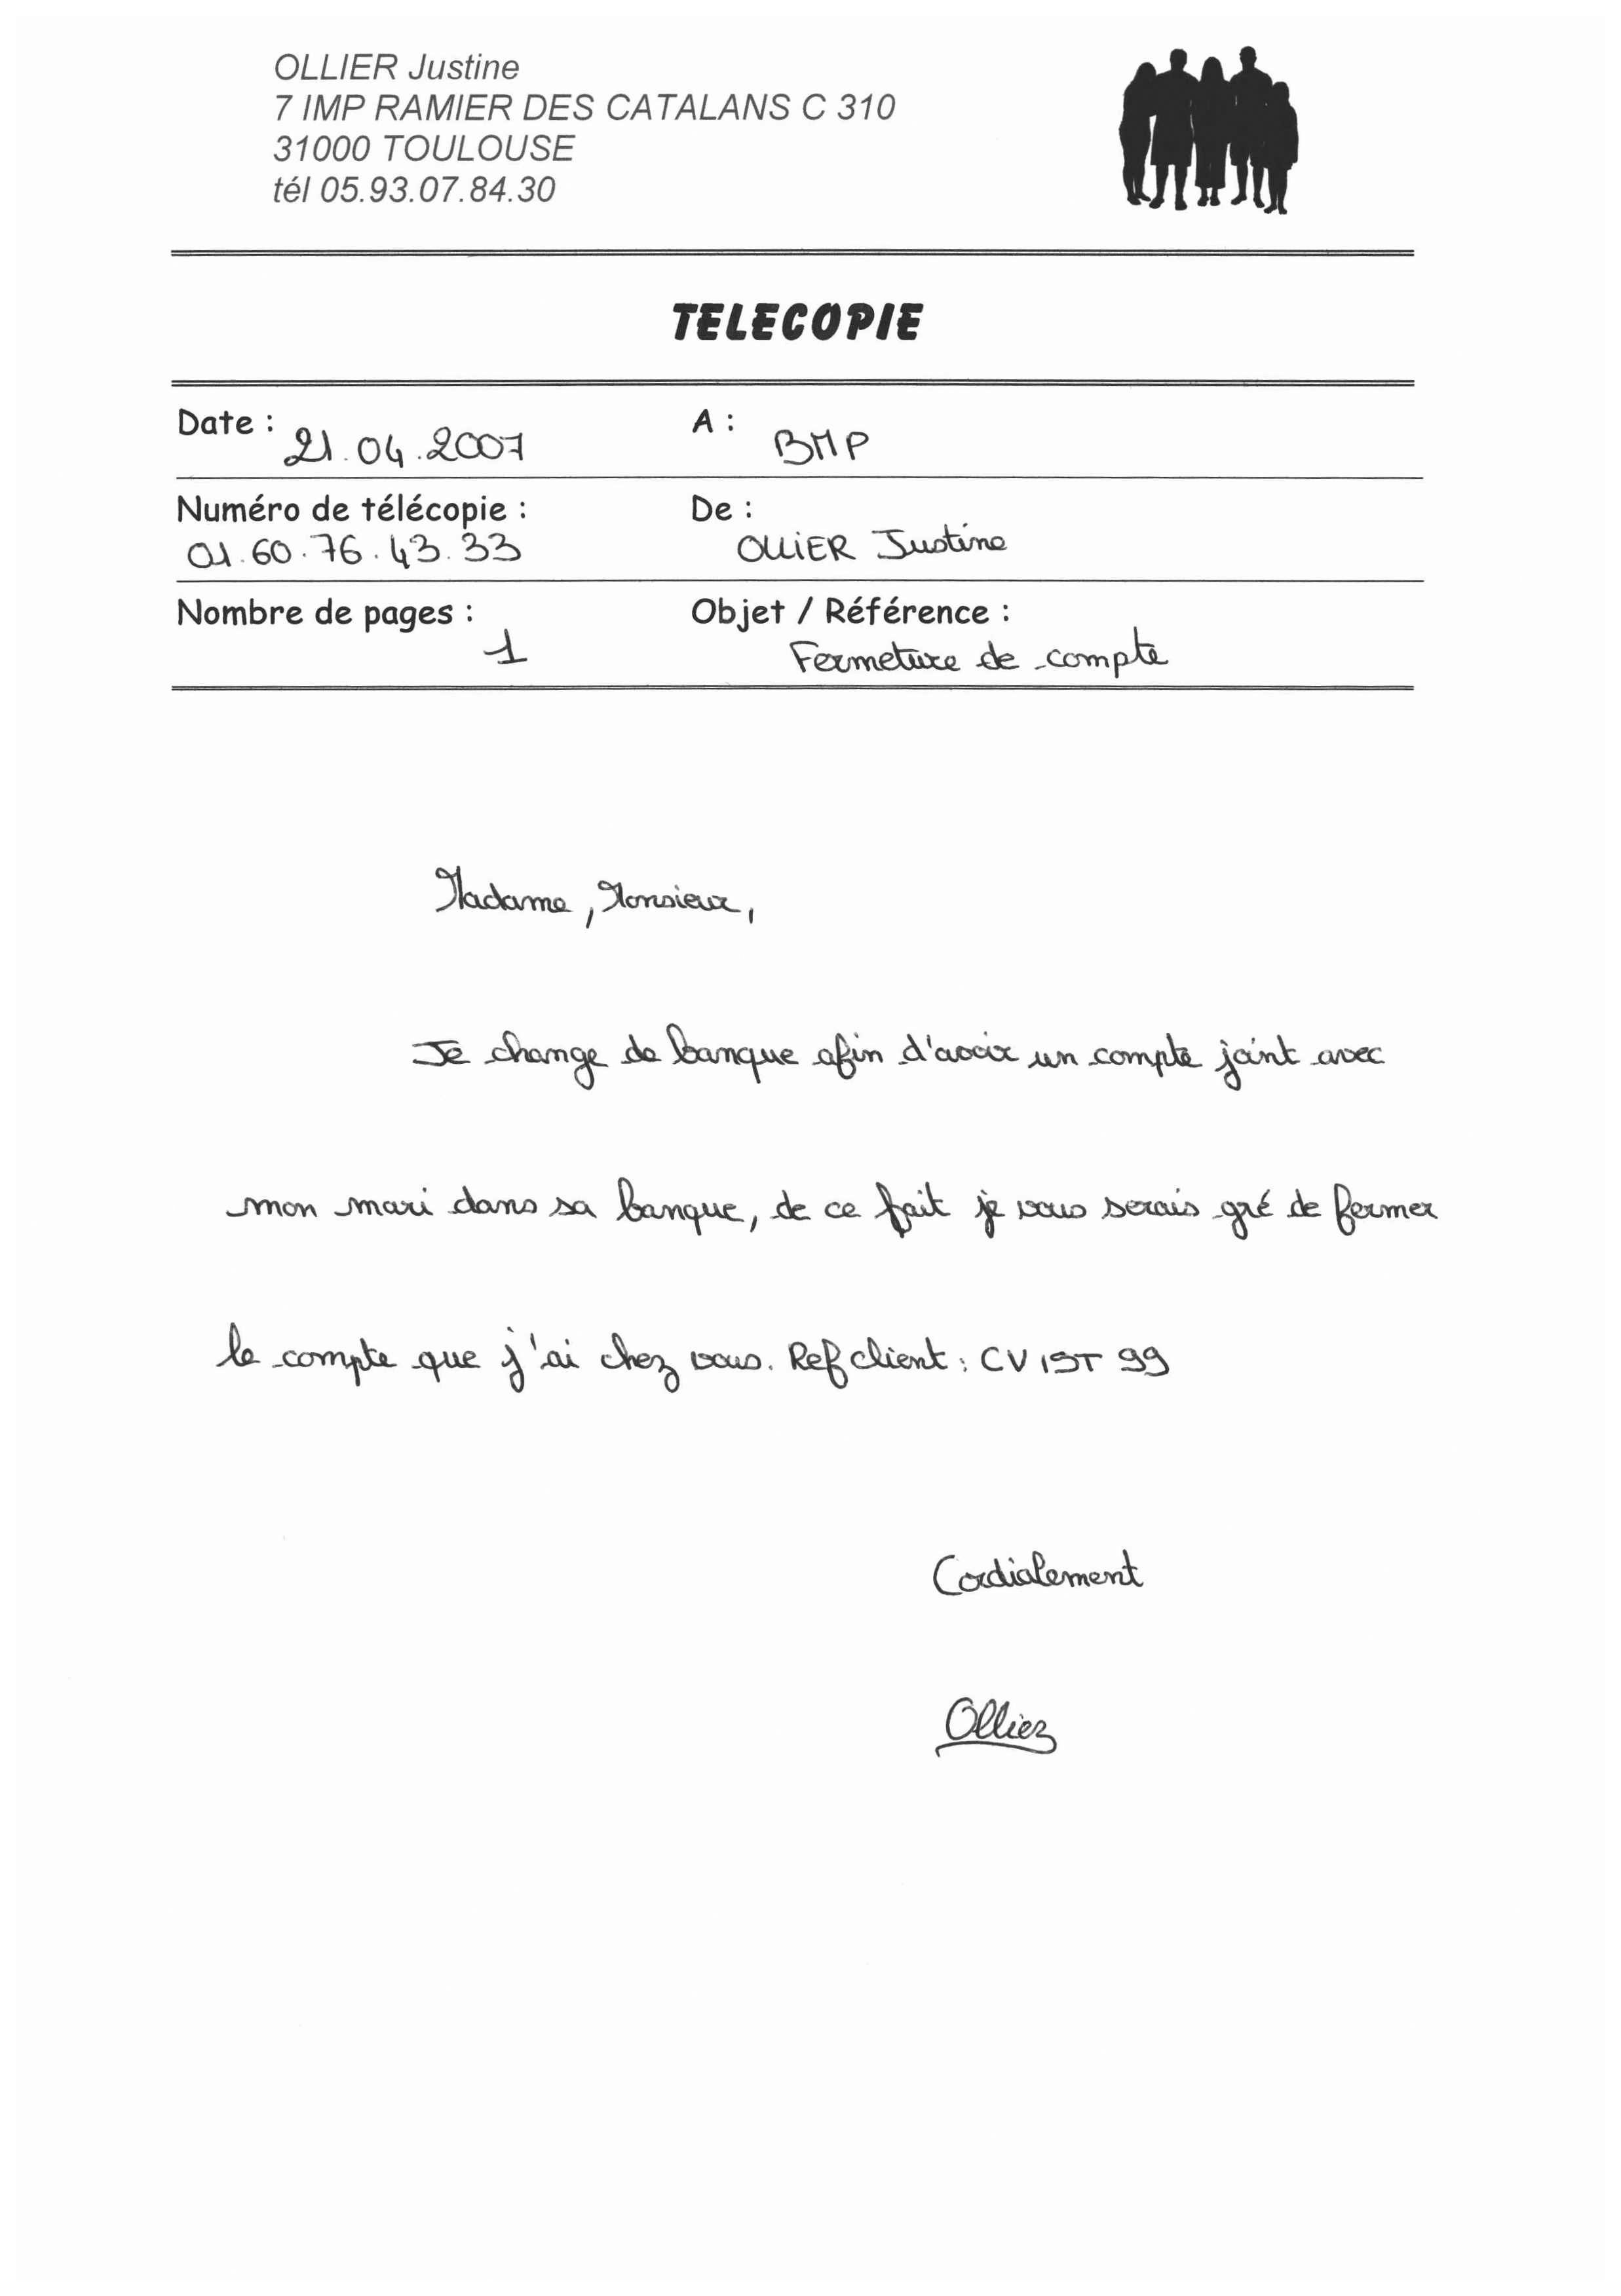 OLLIER Justine
7 IMP RAMIER DES CATALANS C 310
31000 TOULOUSE
tél 05.93.07.84.30
TELECOPIE
Date : 21.04.2007
A : BMP
Numéro de télécopie :
01.60.76.43.33
De :
OLLIER Justine
Nombre de pages :
1
Objet / Référence :
Fermeture de compte
Madame, Monsieur,
Je change de banque afin d'avoir un compte joint avec
mon mari dans sa banque, de ce fait je vous serais gré de fermer
le compte que j'ai chez vous. Ref client : CVIST 99
Cordialement
Ollier